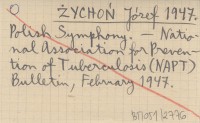 ŻYCHOŃ Józef 1947.
Polish Symphony. — Natio-
nal Association for Preven-
tion of Tuberculosis (NAPT)
Bulletin, February 1947.
BŻ1059/2776